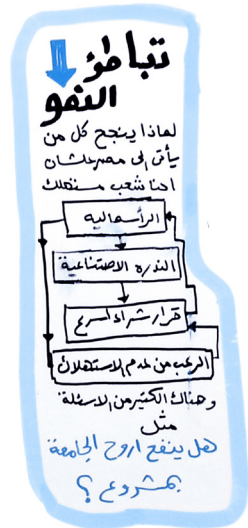 تباطؤ
النمو
لماذا ينجح كل من
يأتى الى مصر علشان
احنا شعب مستهلك
الرأسماليه
الندره الاصتناعية
قرار شراء اسرع
الرعب من عدم الاستهلاك
وهناك الكثير من الاسئلة
مثل
هل ينفع اروح الجامعة
بمشروع ؟